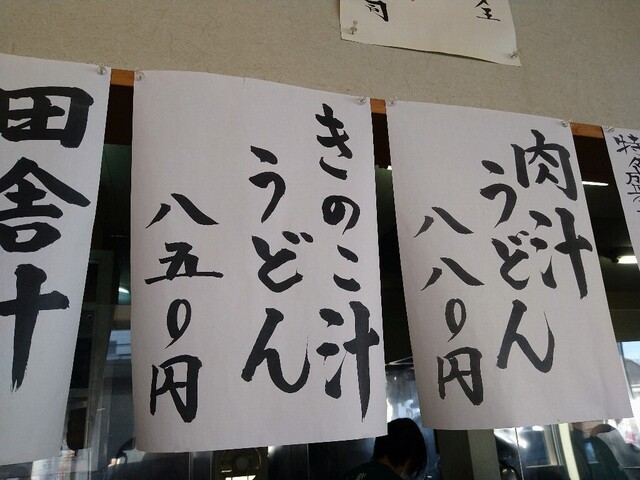 肉汁
うどん
八八〇円
きのこ汁
うどん
八五〇円
田舎汁